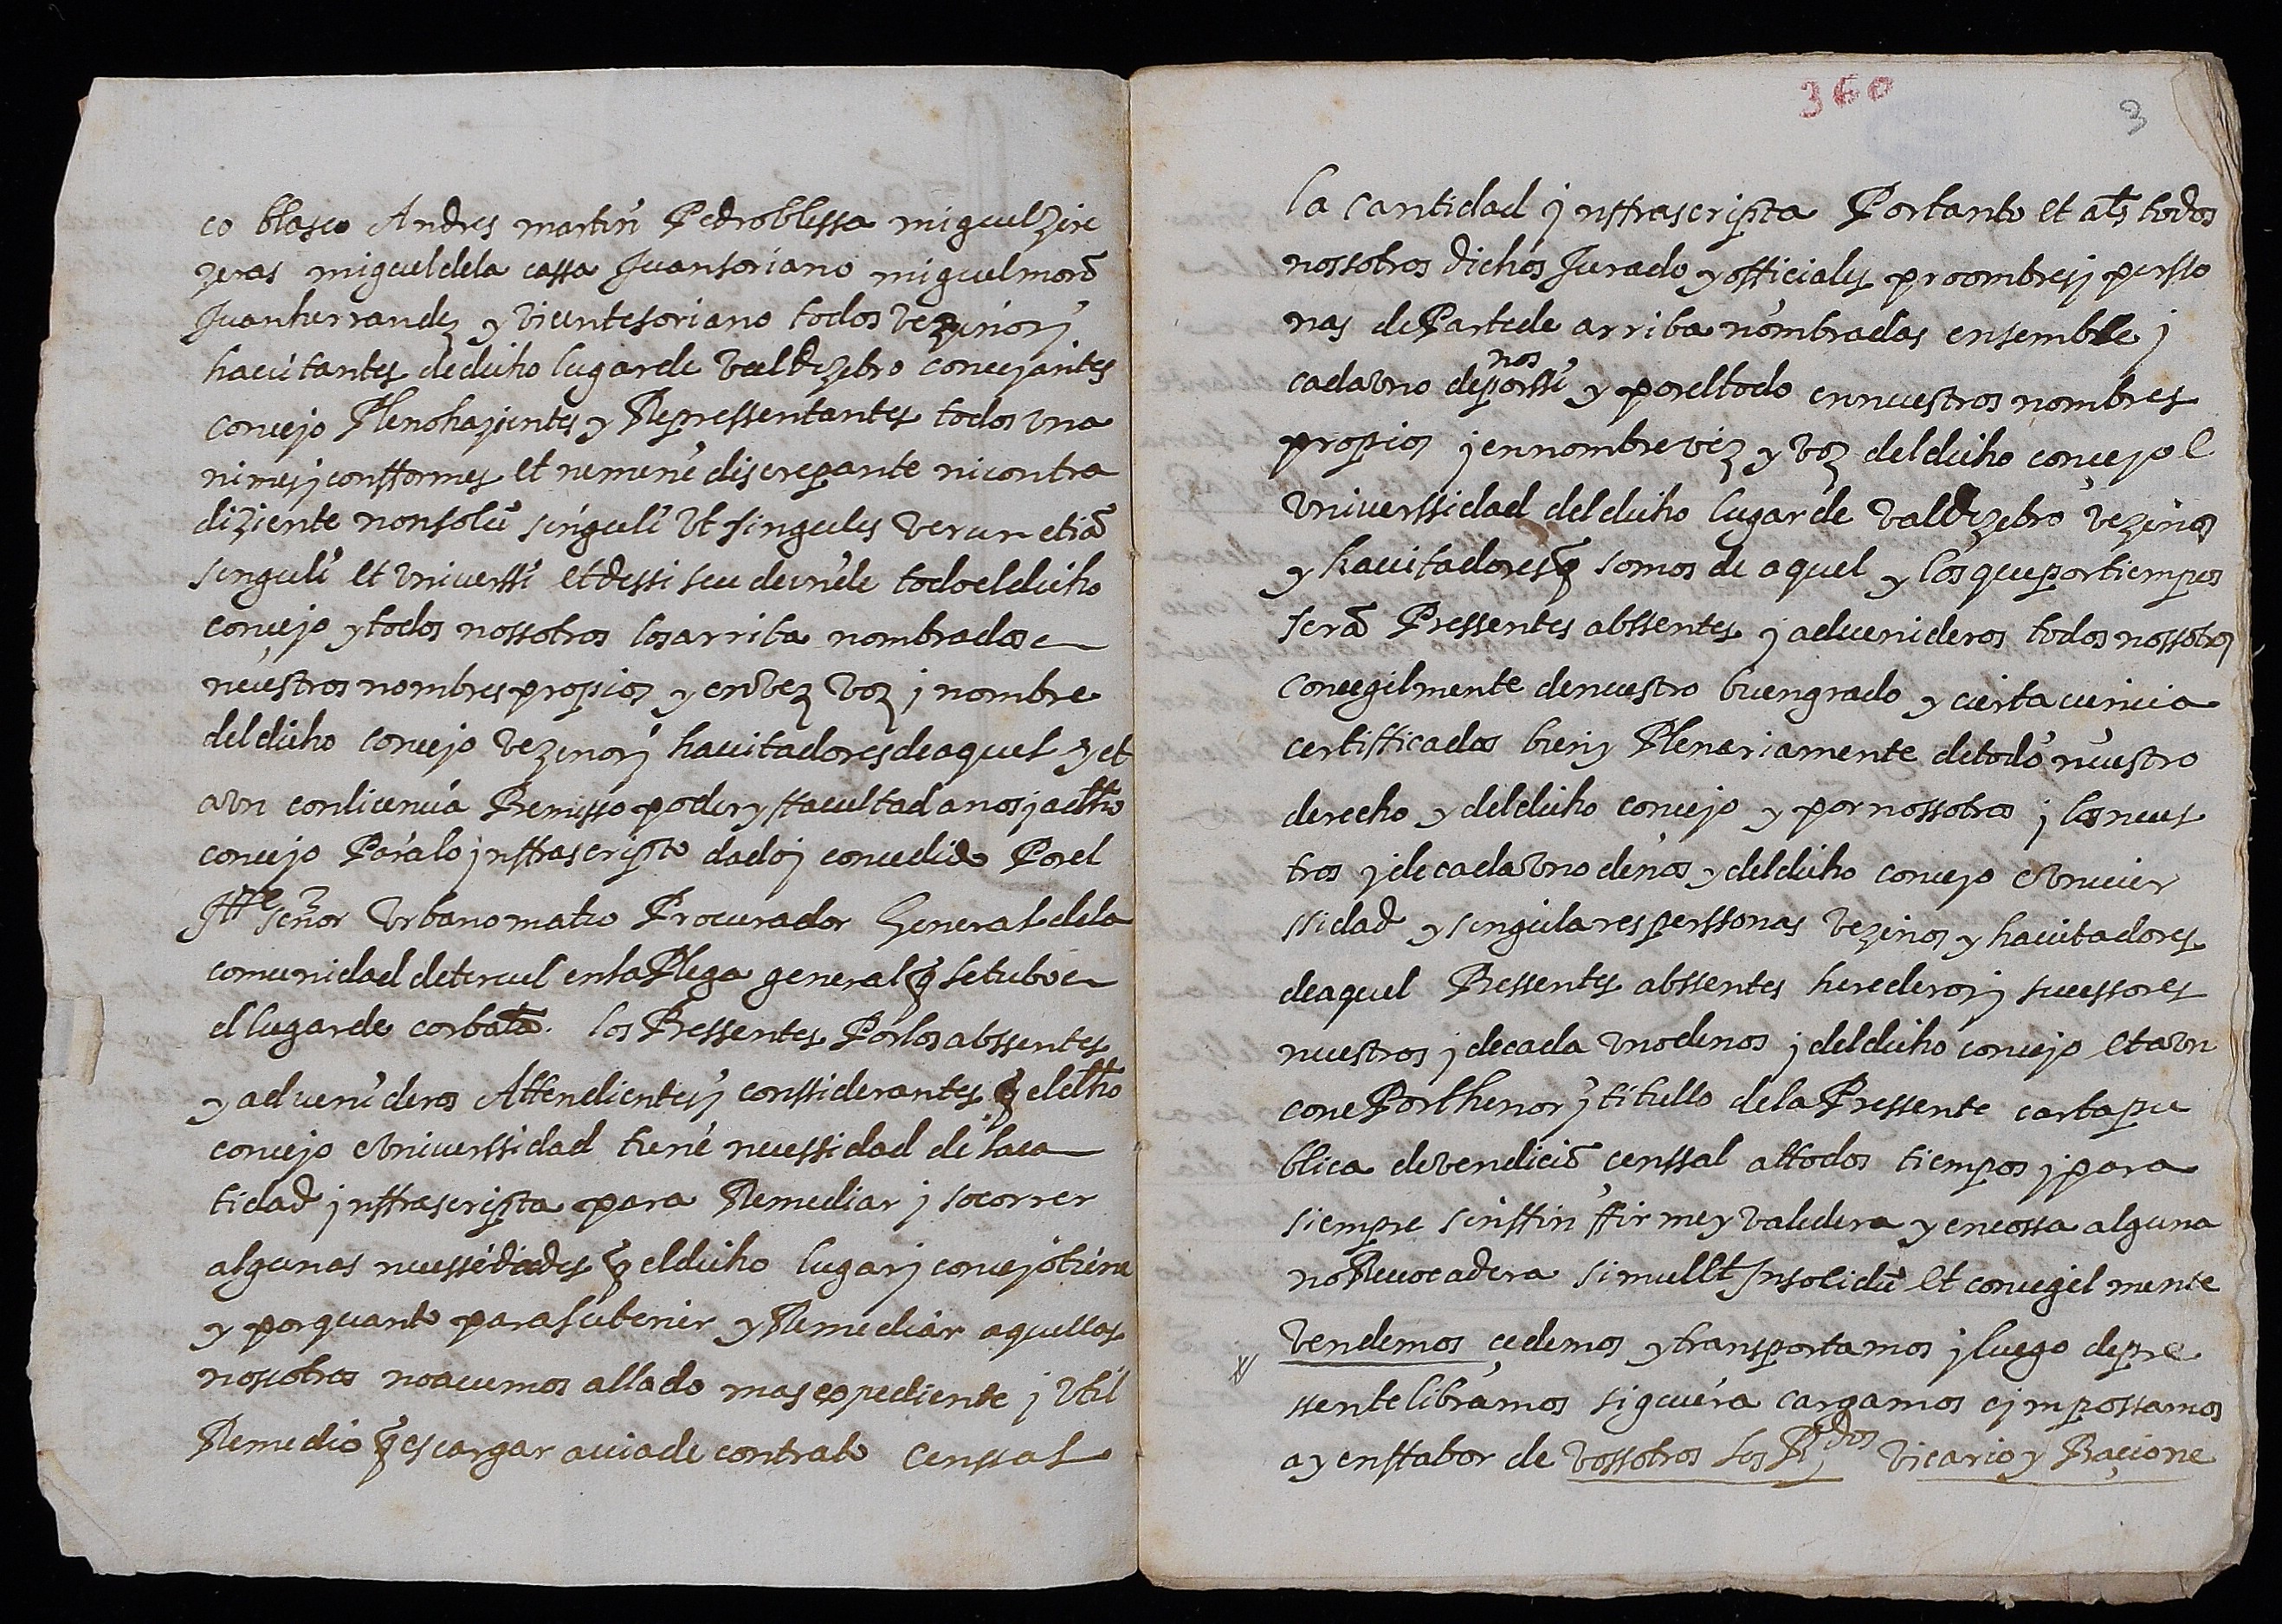 co blasco Andres martin Pedro blessa miguel zere
zeras miguel de la cassa Juan soriano miguel morō
Juan herrandez y vicente soriano todos vezinos j
havitantes de dicho lugar de valdezebro concejantes
concejo Pleno hazientes y Repressentantes todos vna
nimes j confformes et nemine discrepante ni contra
diziente non solū singuli vt singulis verum etiā
singuli et vniverssi et dessi seu de vnde todo el dicho
concejo y todos nossotros los arriba nombrados e
nuestros nombres propios y en vez voz j nombre
del dicho concejo vezinos j havitadores de aquel y et
avn con licencia Premisso poder y ffacultad a nos j a dcho
concejo Para lo jnffrascripto dado j concedido Por el
Jlle señor Vrbano mateo Procurador General de la
comunidad de teruel en la Plega general q̄ se tubo en
el lugar de corbatō. los Pressentes Por los abssentes
y advenideros Attendientes j conssiderantes q̄ el dcho
concejo e vniverssidad tiene necessidad de la ca
tidad jnffrascripta para Remediar j socorrer
algunas necessedades q̄ el dicho lugar j concejo tiene
y por quanto para subenir y Remediar aquellas
nossotros no avemos allado mas expediente j vtil
Remedio q̄ es cargar a via de contrato censsal
360
3
la cantidad jnffrascripta Por tanto et als todos
nossotros dichos Jurado y officiales proombres j persso
nas de Parte de arriba nombradas ensemble j
nos
cada vno de por ssi y por el todo en nuestros nombres
propios j en nombre vez y voz del dicho concejo e
vniverssidad del dicho lugar de valdezebro vezinos
y havitadores q̄ somos de aquel y los que por tiempos
serā Pressentes abssentes j advenideros todos nossotros
concegilmente de nuestro buen grado y cierta ciencia
certifficados bien y Plenariamente de todo nuestro
derecho y del dicho concejo y por nossotros j los nues
tros j de cada vno de nos y del dicho concejo e vniver
ssidad y singulares perssonas vezinos y havitadores
de aquel Pressentes abssentes herederos j sucessores
nuestros j de cada vno de nos j del dicho concejo et avn
con el Por thenor j titullo de la Pressente carta pu
blica de vendiciō censsal a ttodos tiempos j para
siempre sin ffin ffirme y valedera y en cossa alguna
no Revocadera simull et Jnsolidū et concegilmente
vendemos cedemos y transportamos j luego de pre
ssente libramos siquiera cargamos e jmpossamos
a y en ffabor de vossotros los Rdos Vicario y Racione